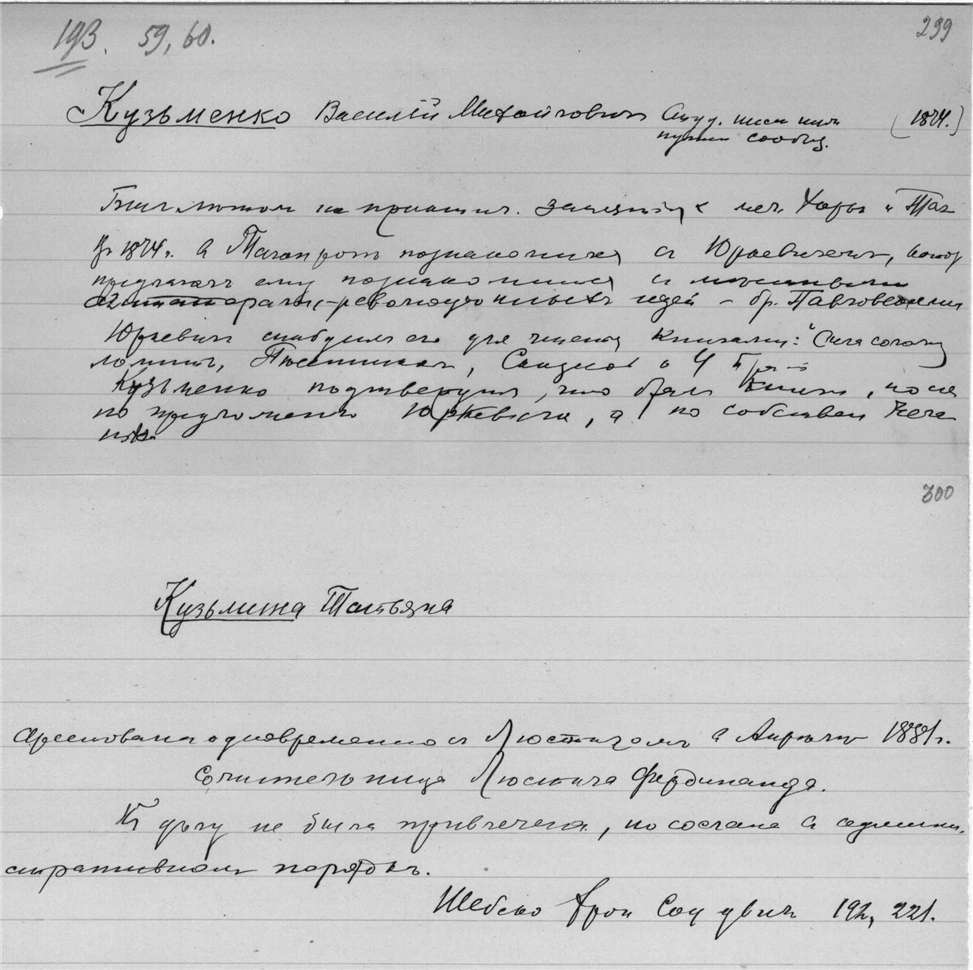 193. 59, 60.
299
Кузьменко Василій Михайлович Студ. инст. инж. (1874.)
путей сообщ.
Был летом на практич. занятіях
В 1874 г. в Таганроге познакомился с Юркевичем, котор
предлагал ему познакомиться с местными
пропаганд.-революціонных идей - бр. Павловскими
Юркевич снабдил его для чтения книгами: "Сила солому
ломит", Песенник, Сказка о 4 бр-х
Кузьменко подтвердил, что брал книги, но не
по предложению Юркевича, а по собствен жела
нію.
300
Кузьмина Татьяна
Арестована одновременно с Люстигом в Апреле 1881 г.
Сожительница Люстига Фердинанда.
К делу не была привлечена, но сослана в админи-
стративном порядке.
Шебеко Хрон 192, 221.